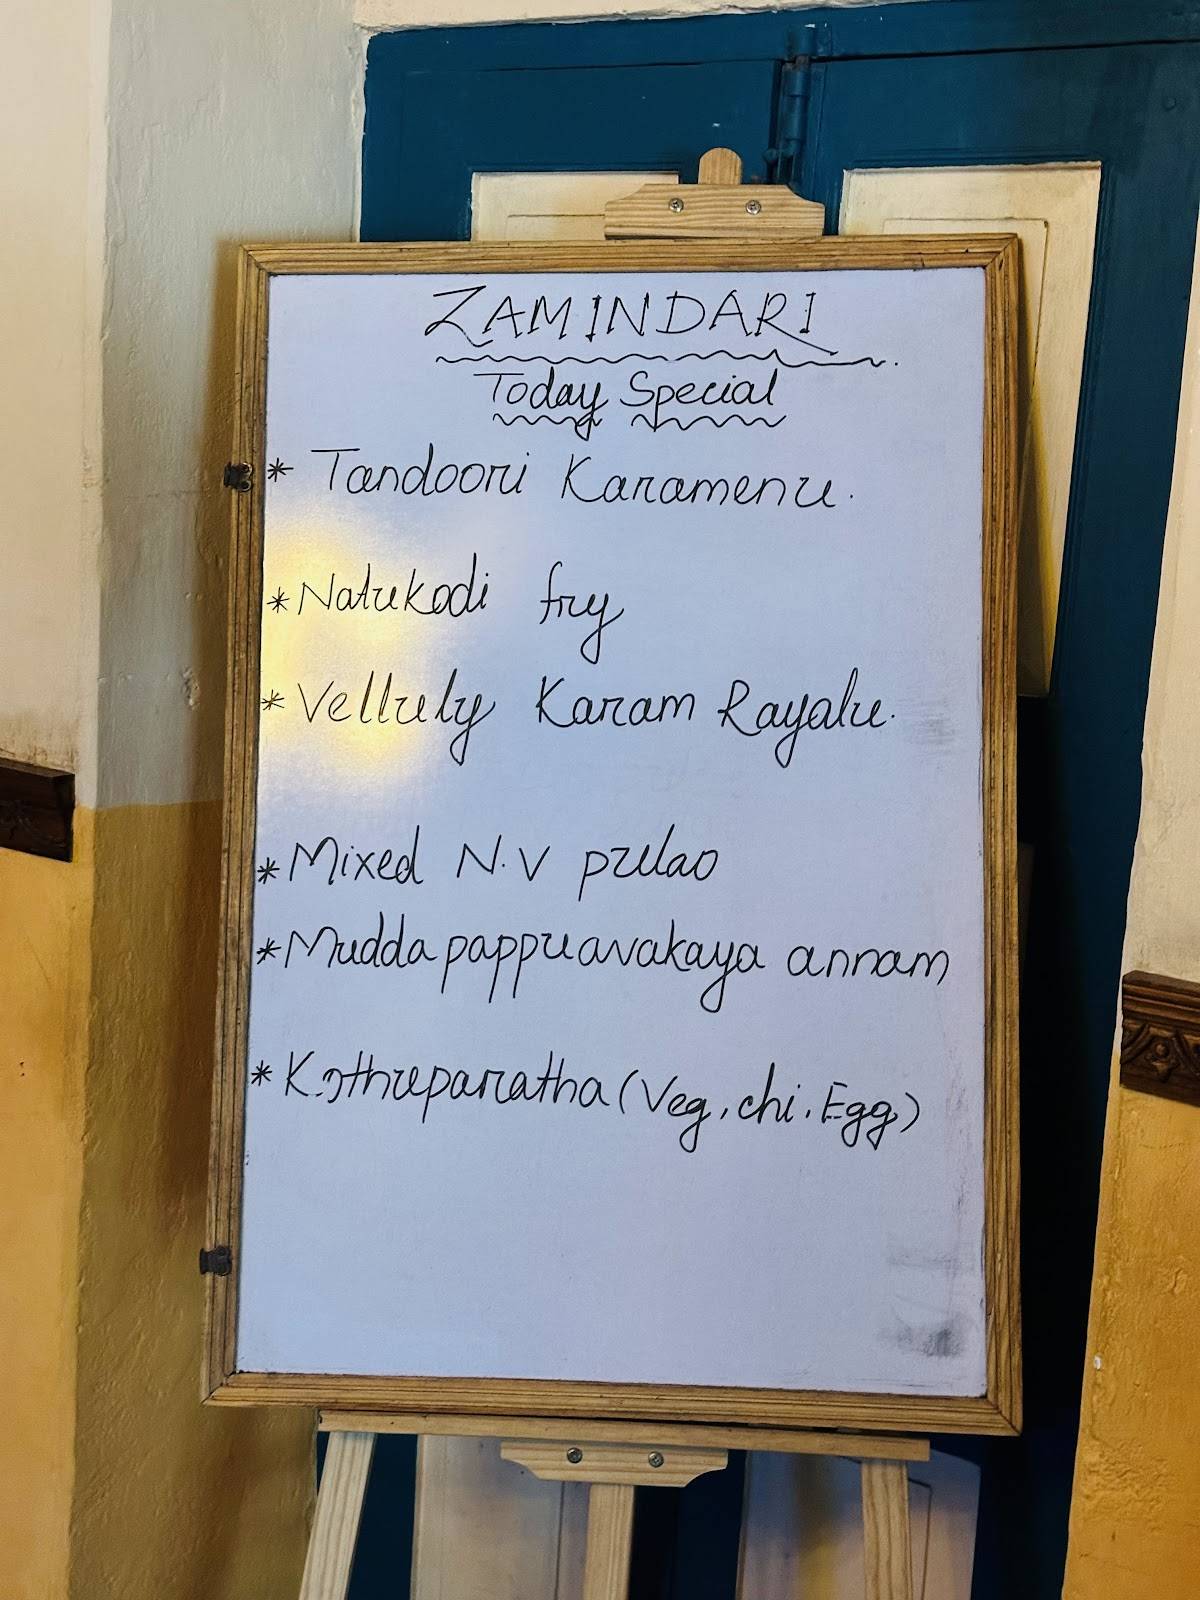 ZAMINDARI
Today Special
* Tandoori Karamenu.
* Natukodi fry
* Velluly Karam Rayalu.
* Mixed N.V pulao
* Mudda pappuavakaya annam
* Kothuparatha (Veg, chi, Egg)